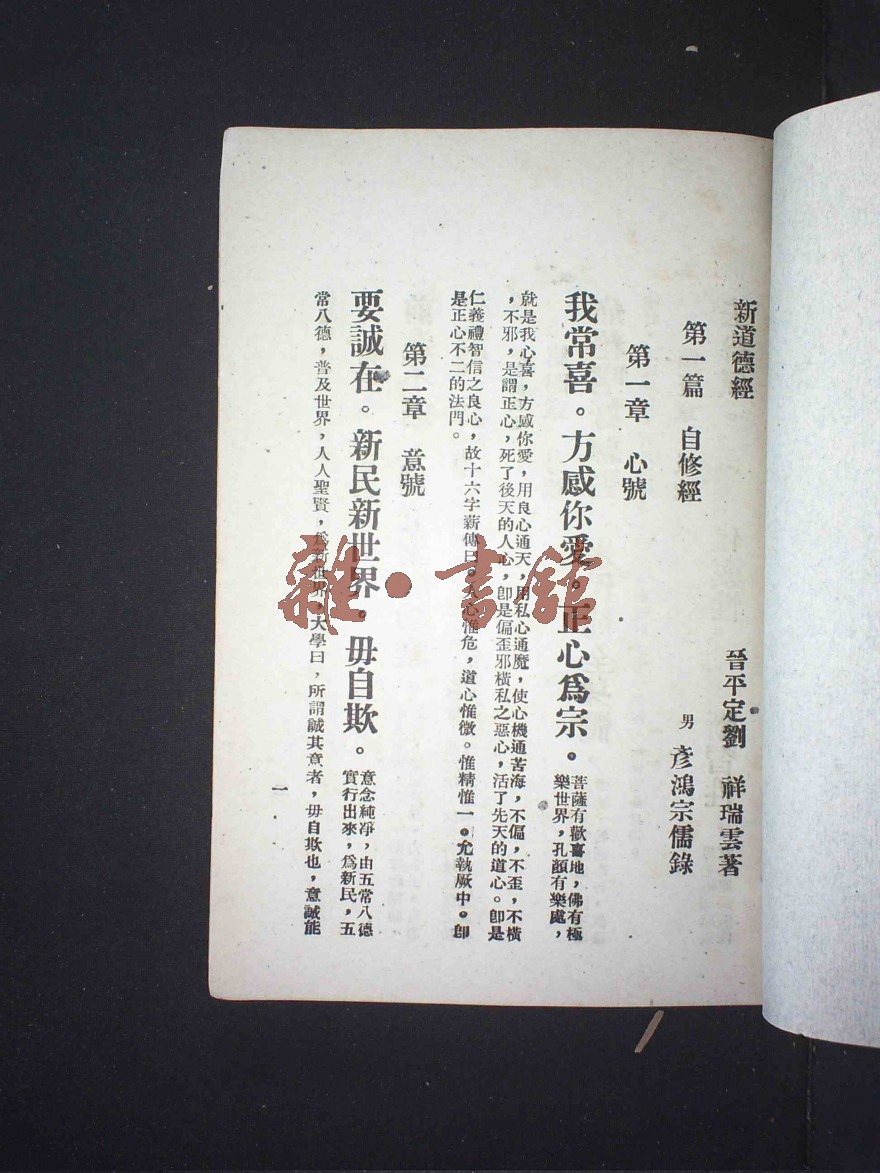 新道德經
晉平定劉　祥瑞雲著
第一篇　自修經
男　彥鴻宗儒錄
第一章　心號
我常喜。方感你愛。正心爲宗。
菩薩有歡喜地，佛有極
樂世界，孔顏有樂處，
就是我心喜，方感你愛，用良心通天，用私心通魔，使心機通苦海，不偏，不歪，不橫
，不邪，是謂正心，死了後天的人心，卽是偏歪邪橫私之惡心，活了先天的道心。卽是
仁義禮智信之良心，故十六字薪傳曰。人心惟危，道心惟微。惟精惟一。允執厥中。卽
是正心不二的法門。
第二章　意號
要誠在。新民新世界。毋自欺。
意念純凈，由五常八德
實行出來，爲新民，五
常八德，普及世界，人人聖賢，爲新世界，大學曰，所謂誠其意者，毋自欺也，意誠能
一
雜·書館